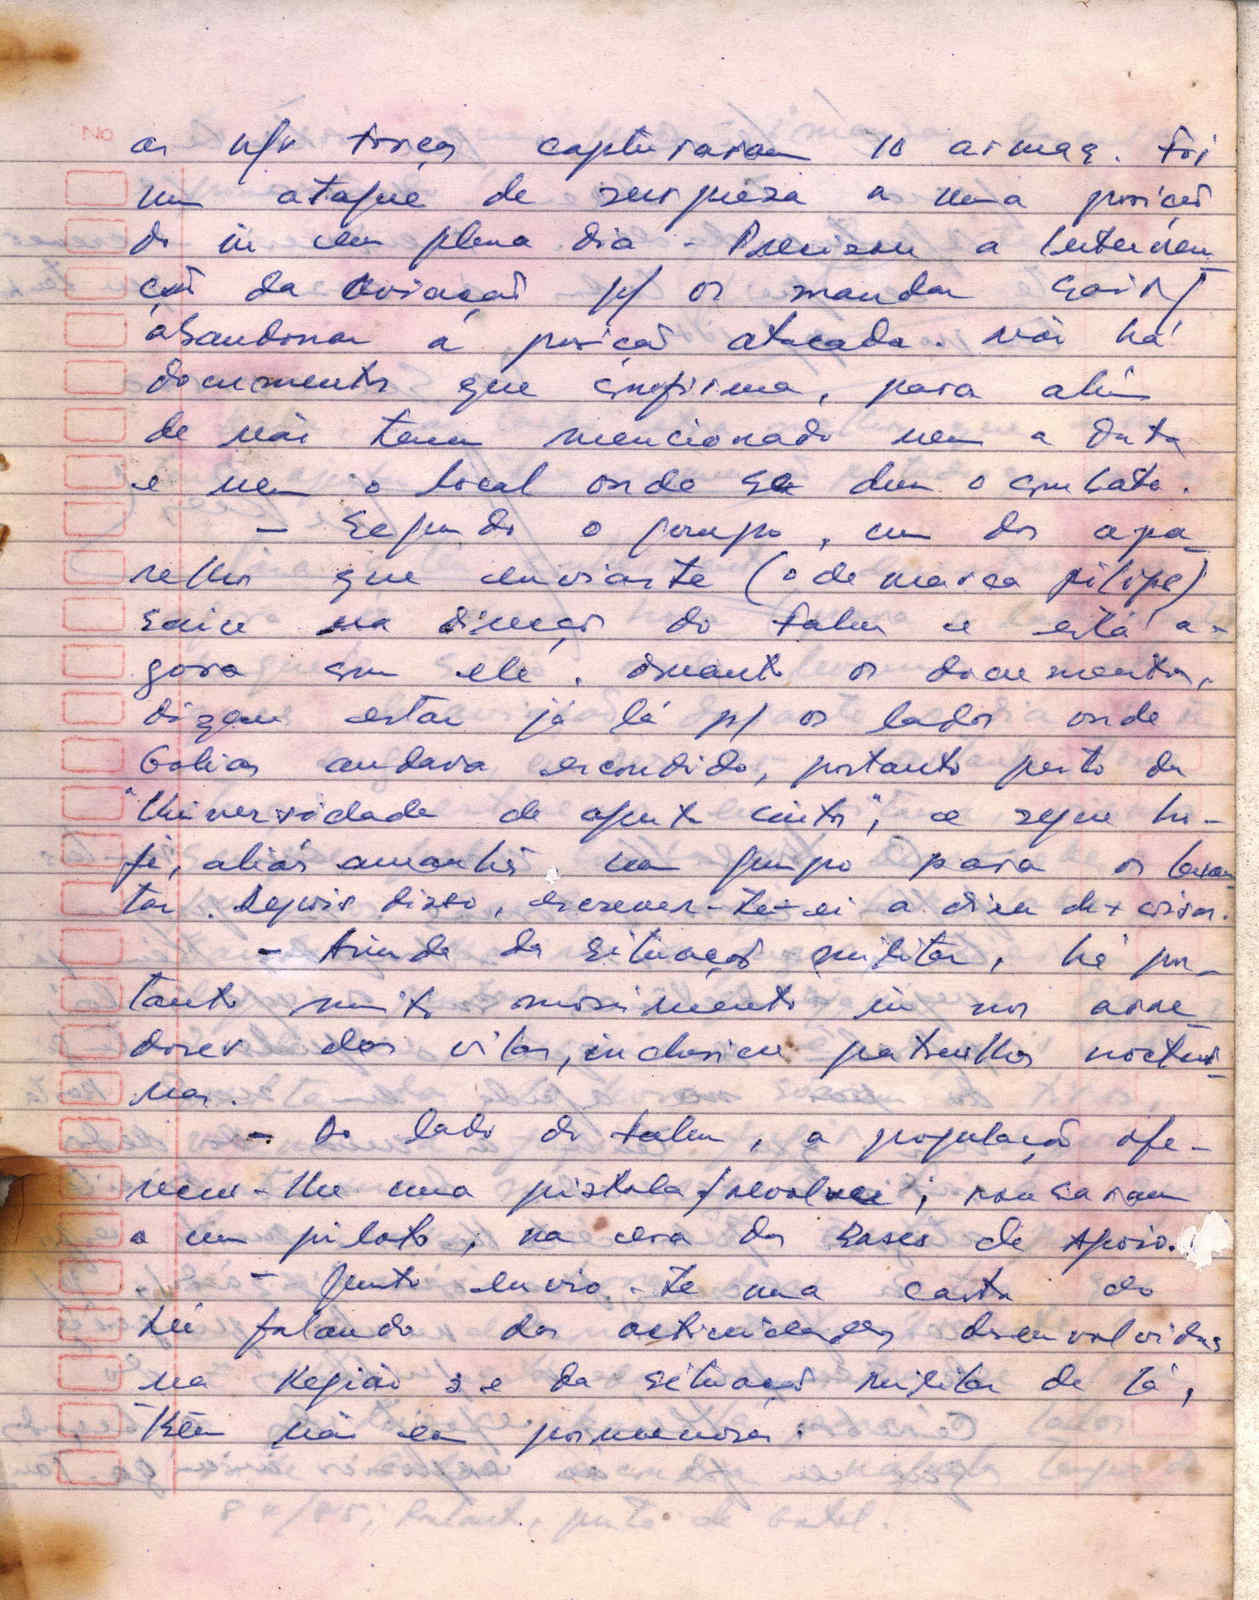 as n/s forças capturaram 10 armas. Foi
um ataque de surpresa a uma posição
do in em plena dia - Precisou a interven-
ção da aviação p/ os mandar sair/
abandonar a posição atacada. Não há
documento que confirma, para além
de não terem mencionado nem a data
e nem o local onde se deu o combate.
- Segundo o grupo, um dos apa-
relhos que enviaste (o de marca pilips)
saiu na direcção do Falu e está a-
gora com ele. Quanto os documentos,
dizem estar já lá p/ os lados onde
Golias andava escondido, portanto perto da
"Universidade de Agosto", e segue ho-
je, aliás amanhã um grupo para os levan-
tar. Depois disso, escrever-te-ei a dizer + coisas.
- Ainda da situação militar, há por-
tanto muito movimento in nos arre-
dores das vilas, inclusive patrulhas noctur-
nas.
- Do lado do Falu, a população ofe-
receu-lhe uma pistola/revolver; roubaram
a um piloto, na cera das Bases de Apoio.
- Junto envio-te uma carta do
falando das actividades desenvolvidas
na Região 3 e da situação militar de lá,
tbém não em pormenores.